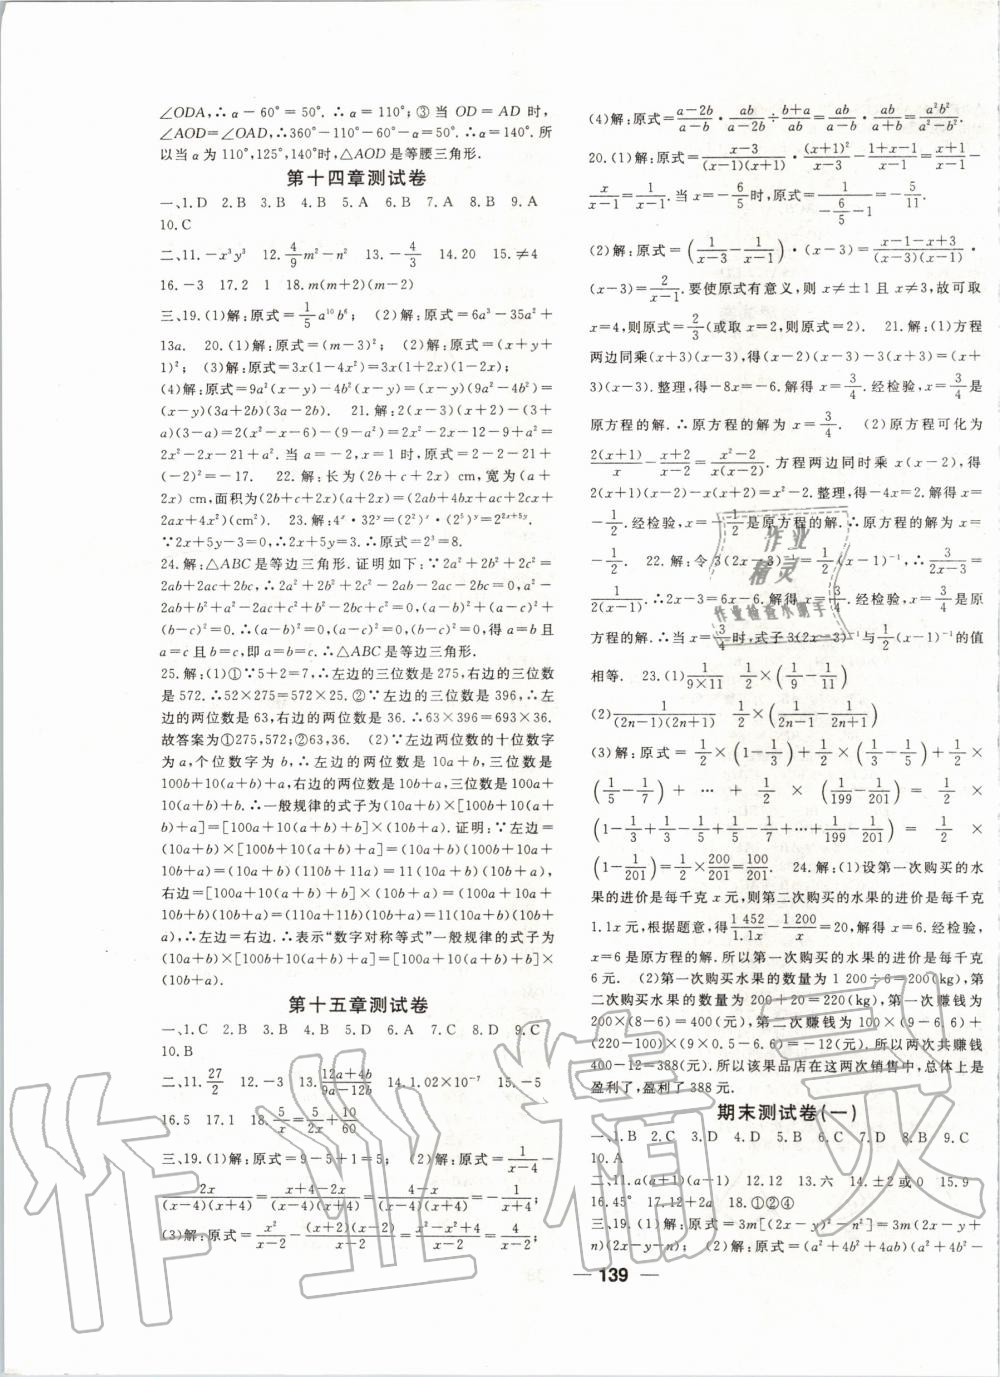 ∠ODA,∴α-60°=50°.∴α=110°;③当 OD=AD 时,
∠AOD=∠OAD,∴360°-110°-60°-α=α.∴α=140°.所
以当α为110°,125°,140°时,△AOD是等腰三角形.
第十四章测试卷
一、1.D 2.B 3.B 4.B 5.A 6.B 7.A 8.B 9.A
10.C
二、11.-x³y³ 12.4/9m²-n² 13.-4/3 14.20 15.≠4
16.-3 17.2 1 18.m(m+2)(m-2)
三、19.(1)解:原式=1/5a¹⁰b⁶; (2)解:原式=6a³-35a²+
13a. 20.(1)解:原式=(m-3)²; (2)解:原式=(x+y+
1)²; (3)解:原式=3x(1-4x²)=3x(1+2x)(1-2x);
(4)解:原式=9a²(x-y)-4b²(x-y)=(x-y)(9a²-4b²)=
(x-y)(3a+2b)(3a-2b). 21.解:2(x-3)(x+2)-(3+
a)(3-a)=2(x²-x-6)-(9-a²)=2x²-2x-12-9+a²=
2x²-2x-21+a². 当 a=-2,x=1时,原式=2-2-21+
(-2)²=-17. 22.解:长为(2b+c+2x) cm,宽为(a+
2x) cm,面积为(2b+c+2x)(a+2x)=(2ab+4bx+ac+2cx+
2ax+4x²)(cm²). 23.解:4ˣ·32ʸ=(2²)ˣ·(2⁵)ʸ=2²ˣ⁺⁵ʸ.
∵2x+5y-3=0,∴2x+5y=3.∴原式=2³=8.
24.解:△ABC是等边三角形.证明如下:∵2a²+2b²+2c²=
2ab+2ac+2bc,∴2a²+2b²+2c²-2ab-2ac-2bc=0,a²-
2ab+b²+a²-2ac+c²+b²-2bc+c²=0,(a-b)²+(a-c)²+
(b-c)²=0.∴(a-b)²=0,(a-c)²=0,(b-c)²=0,得a=b且
a=c且b=c,即a=b=c.∴△ABC是等边三角形.
25.解:(1)①∵5+2=7,∴左边的三位数是275,右边的三位数
是572.∴52×275=572×25.②∵左边的三位数是396,∴左
边的两位数是63,右边的两位数是36.∴63×396=693×36.
故答案为①275,572;②63,36. (2)∵左边两位数的十位数字
为a,个位数字为b,∴左边的两位数是10a+b,三位数是
100b+10(a+b)+a,右边的两位数是10b+a,三位数是100a+
10(a+b)+b.∴一般规律的式子为(10a+b)×[100b+10(a+
b)+a]=[100a+10(a+b)+b]×(10b+a).证明:∵左边=
(10a+b)×[100b+10(a+b)+a]=(10a+b)(100b+10a+
10b+a)=(10a+b)(110b+11a)=11(10a+b)(10b+a),
右边=[100a+10(a+b)+b]×(10b+a)=(100a+10a+
10b+b)(10b+a)=(110a+11b)(10b+a)=11(10a+b)(10b+
a),∴左边=右边.∴表示“数字对称等式”一般规律的式子为
(10a+b)×[100b+10(a+b)+a]=[100a+10(a+b)+b]×
(10b+a).
第十五章测试卷
一、1.C 2.B 3.B 4.B 5.B 6.A 7.C 8.D 9.C
10.B
二、11.27/2 12.-3 13.(12a+4b)/(9a-12b) 14.1.02×10⁻⁷ 15.-5
16.5 17.1 18.5/x=5/2x+10/60
三、19.(1)解:原式=9-5+1=5; (2)解:原式=1/(x-4)-
2x/((x-4)(x+4))=(x+4-2x)/((x-4)(x+4))=(4-x)/((x-4)(x+4))=-1/(x+4);
(3)解:原式=x²/(x-2)-(x+2)(x-2)/(x-2)=(x²-x²+4)/(x-2)=4/(x-2);
(4)解:原式=(a-2b)/(a-b)·ab/(a-2b)÷(b+a)/ab=ab/(a-b)·ab/(a+b)=a²b²/(a²-b²).
20.(1)解:原式=(x-3)/((x-1)(x+1))·(x+1)²/(x-3)-(1+x-1)/(x-1)=(x+1)/(x-1)-
x/(x-1)=1/(x-1).当 x=-6/5时,原式=1/(-6/5-1)=-5/11.
(2)解:原式=(1/(x-3)-1/(x-1))·(x-3)=(x-1-x+3)/((x-3)(x-1))·
(x-3)=2/(x-1).要使原式有意义,则 x≠±1且 x≠3,故可取
x=4,则原式=2/3(或取 x=2,则原式=2). 21.解:(1)方程
两边同乘(x+3)(x-3),得(x-2)(x-3)-3(x+3)=(x+
3)(x-3).整理,得-8x=-6.解得 x=3/4.经检验,x=3/4是
原方程的解.∴原方程的解为 x=3/4. (2)原方程可化为
2(x+1)/x-(x+2)/(x-2)=(x²-2)/(x(x-2)).方程两边同时乘 x(x-2),得
2(x+1)(x-2)-x(x+2)=x²-2.整理,得-4x=2.解得 x=
-1/2.经检验,x=-1/2是原方程的解.∴原方程的解为 x=
-1/2. 22.解:令 3(2x-3)⁻¹=1/2(x-1)⁻¹,∴3/(2x-3)=
1/(2(x-1)).∴2x-3=6x-6.解得 x=3/4.经检验,x=3/4是原
方程的解.∴当 x=3/4时,式子3(2x-3)⁻¹与1/2(x-1)⁻¹的值
相等. 23.(1)1/(9×11) 1/2×(1/9-1/11)
(2)1/((2n-1)(2n+1)) 1/2×(1/(2n-1)-1/(2n+1))
(3)解:原式=1/2×(1-1/3)+1/2×(1/3-1/5)+1/2×
(1/5-1/7)+…+1/2×(1/199-1/201)=1/2×
(1-1/3+1/3-1/5+1/5-1/7+…+1/199-1/201)=1/2×
(1-1/201)=1/2×200/201=100/201. 24.解:(1)设第一次购买的水
果的进价是每千克 x 元,则第二次购买的水果的进价是每千克
1.1x元,根据题意,得1 452/1.1x-1 200/x=20,解得 x=6.经检验,
x=6是原方程的解.所以第一次购买的水果的进价是每千克
6元. (2)第一次购买水果的数量为1 200÷6=200(kg),第
二次购买水果的数量为200+20=220(kg).第一次赚钱为
200×(8-6)=400(元),第二次赚钱为100×(9-6.6)+
(220-100)×(9×0.5-6.6)=-12(元).所以两次共赚钱
400-12=388(元).所以该果品店在这两次销售中,总体上是
盈利了,盈利了388元.
期末测试卷(一)
一、1.B 2.C 3.D 4.D 5.B 6.C 7.D 8.B 9.C
10.A
二、11.a(a+1)(a-1) 12.12 13.六 14.±2或0 15.9
16.45° 17.12+2a 18.①②④
三、19.(1)解:原式=3m[(2x-y)²-n²]=3m(2x-y+
n)(2x-y-n); (2)解:原式=(a²+4b²+4ab)(a²+4b²-
139
作业精灵
作业检查小助手
作业精灵